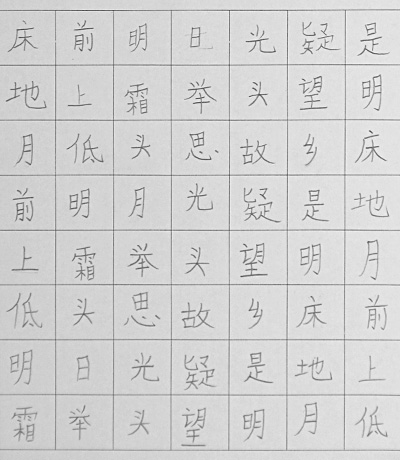 床前明日光疑是
地上霜举头望明
月低头思故乡床
前明月光疑是地
上霜举头望明月
低头思故乡床前
明日光疑是地上
霜举头望明月低